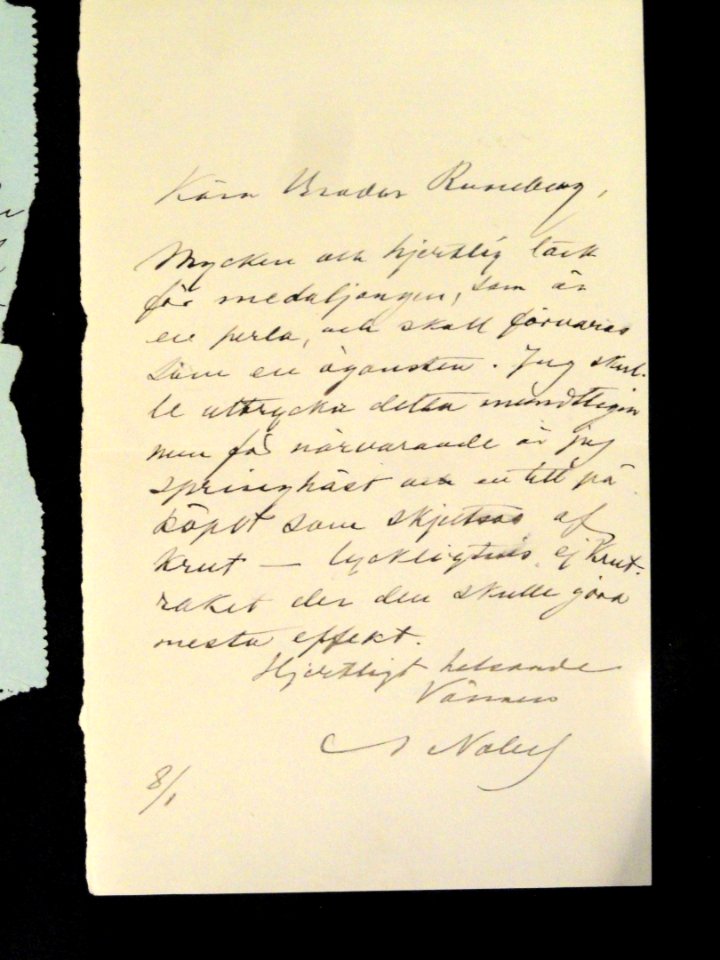 Käre Broder Runeberg,
Mycken och hjertlig tack
för medaljongen, som är
en perla, och skall förvaras
som en ögonsten. Jag skul-
le uttrycka detta mundtligen
men för närvarande är jag
springhäst och en till på
köpet som skjutsas af
krut — lyckligtvis ej krut-
raket der den skulle göra
mesta effekt.
Hjertligt helsande
Vännen
A Nobel
8/1